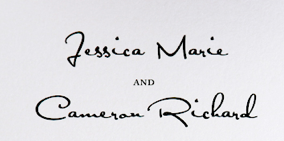 Jessica Marie
AND
Cameron Richard